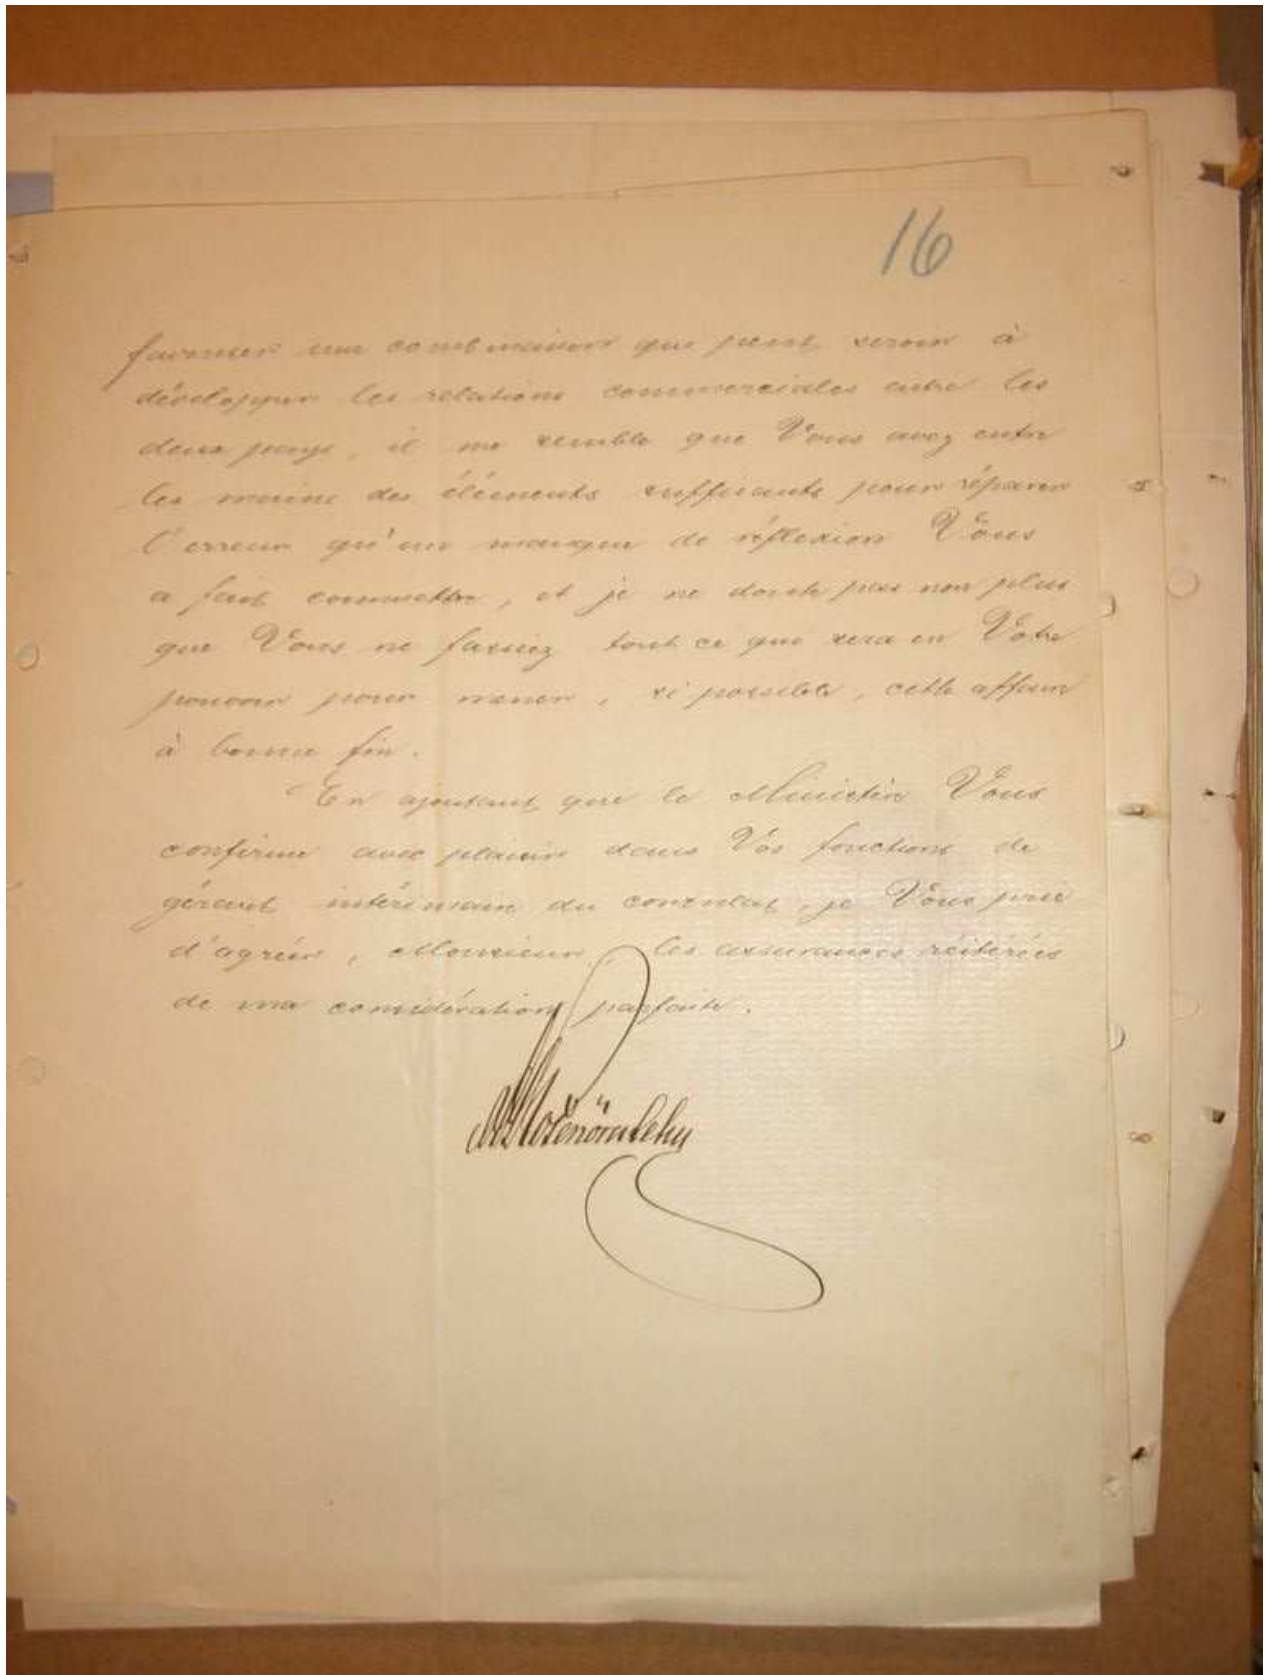 16
favoriser une combinaison que peut servir à
développer les relations commerciales entre les
deux pays, il me semble que Vous avez entre
les mains des éléments suffisants pour réparer
l'erreur qu'un manque de réflexion Vous
a fait commettre, et je ne doute pas non plus
que Vous ne fassiez tout ce que sera en Votre
pouvoir pour mener, si possible, cette affaire
à bonne fin.
En ajoutant que le Ministère Vous
confirme avec plaisir dans Vos fonctions de
gérant intérimaire du consulat, je Vous prie
d'agréer, Monsieur, les assurances réitérées
de ma considération parfaite.